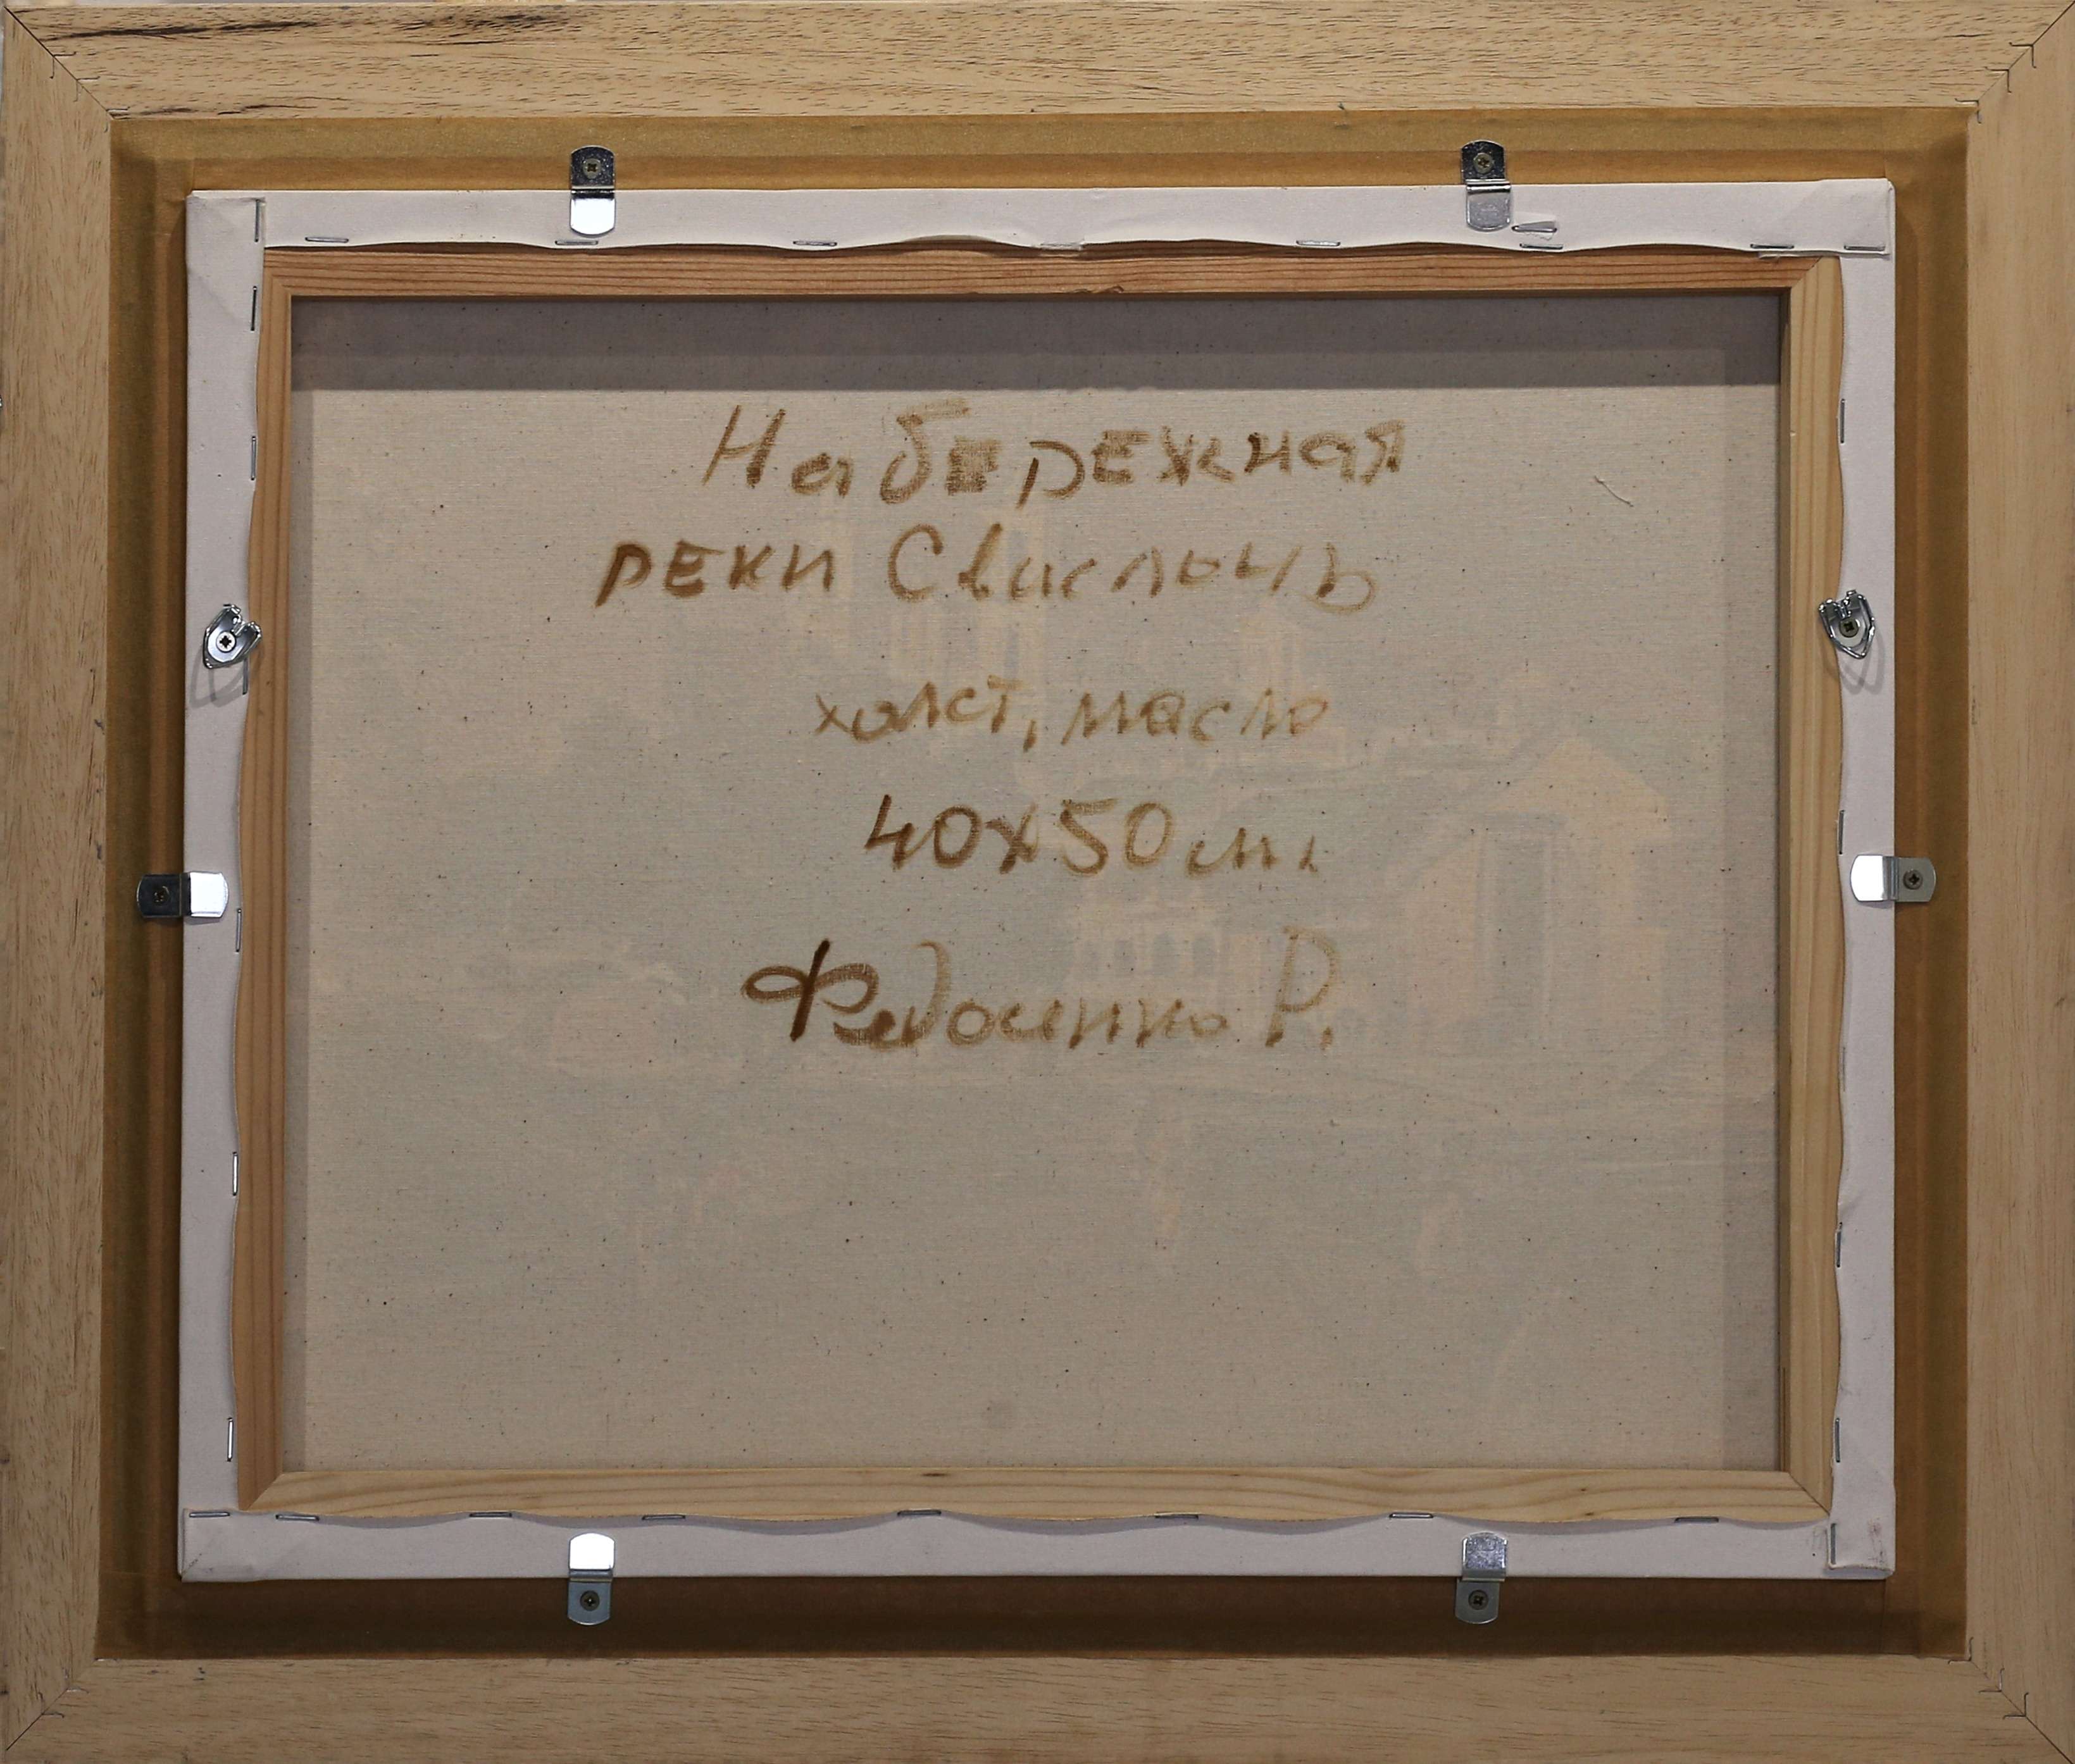 Набережная
реки Свислочь
холст, масло
40х50см.
Федосенко Р.